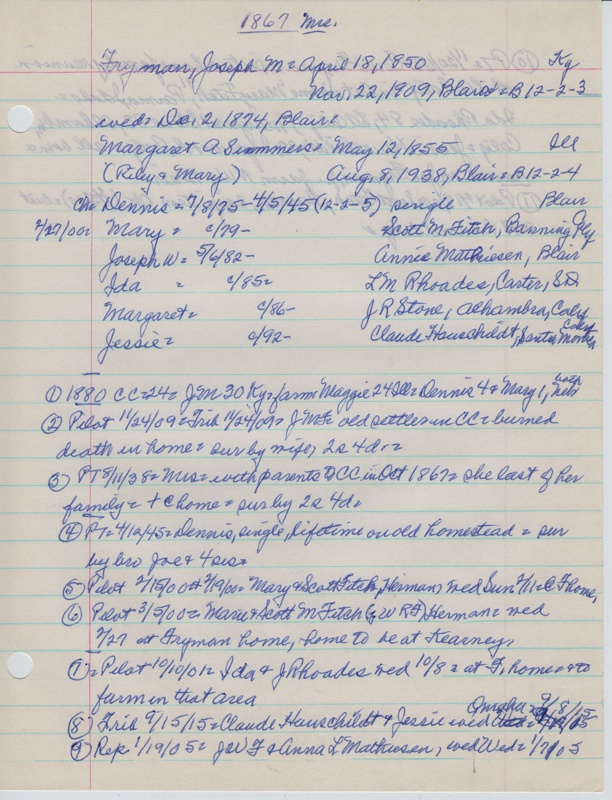 1867 Mrs.
Fryman, Joseph M = April 18, 1850 Ky
Nov, 22, 1909, Blair = B 12-2-3
wed = Dec 2, 1874, Blair =
Margaret A Summers = May 12, 1855 Ill
(Riley & Mary) Aug, 8, 1938, Blair = B 12-2-4
Ch = Dennis = 7/8/75 - 4/5/45 (12-2-5) single Blair
2/27/00 = Mary = c/79 - Scott M. Fitch, Banning
Joseph W = 5/6/82 - Annie Matthiesen, Blair
Ida = c/85 = L M Rhoades, Carter, SD
Margaret = c/86 - J R Stone, Alhambra, Calif
Jessie = c/92 - Claude Hauschildt, Santa Monica Calif
① 1880 CC = 24 = J M 30 Ky = farm = Maggie 24 Ill = Dennis 4 & Mary 1, both Neb
② Pilot 11/24/09 = Trib 11/24/09 = J M F = old settler in CC = burned
death in home = sur by wife, 2s 4d =
③ PT 8/11/38 = Mrs = with parents to CC in Oct 1867 = she last of her
family = + C home = sur by 2s 4d =
④ PT = 4/12/45 = Dennis, single, lifetime on old homestead = sur
by bro Joe & 4 sis =
⑤ Pilot 2/15/00 + 2/19/00 = Mary & Scott Fitch, Herman, wed Sun 2/11 = @ F home,
⑥ Pilot 3/5/00 = Mary & Scott M Fitch (s W R F) Herman = wed
2/27 at Fryman home, home to be at Kearney,
⑦ = Pilot 10/10/01 = Ida & J Rhoades wed 10/8 = at F, home = to
farm in that area
Omaha = 9/8/15
⑧ Trib 9/15/15 = Claude Hauschildt & Jessie wed
⑨ Rep 1/19/05 = J W F & Anna L Mathiesen, wed Wed = 1/ /05